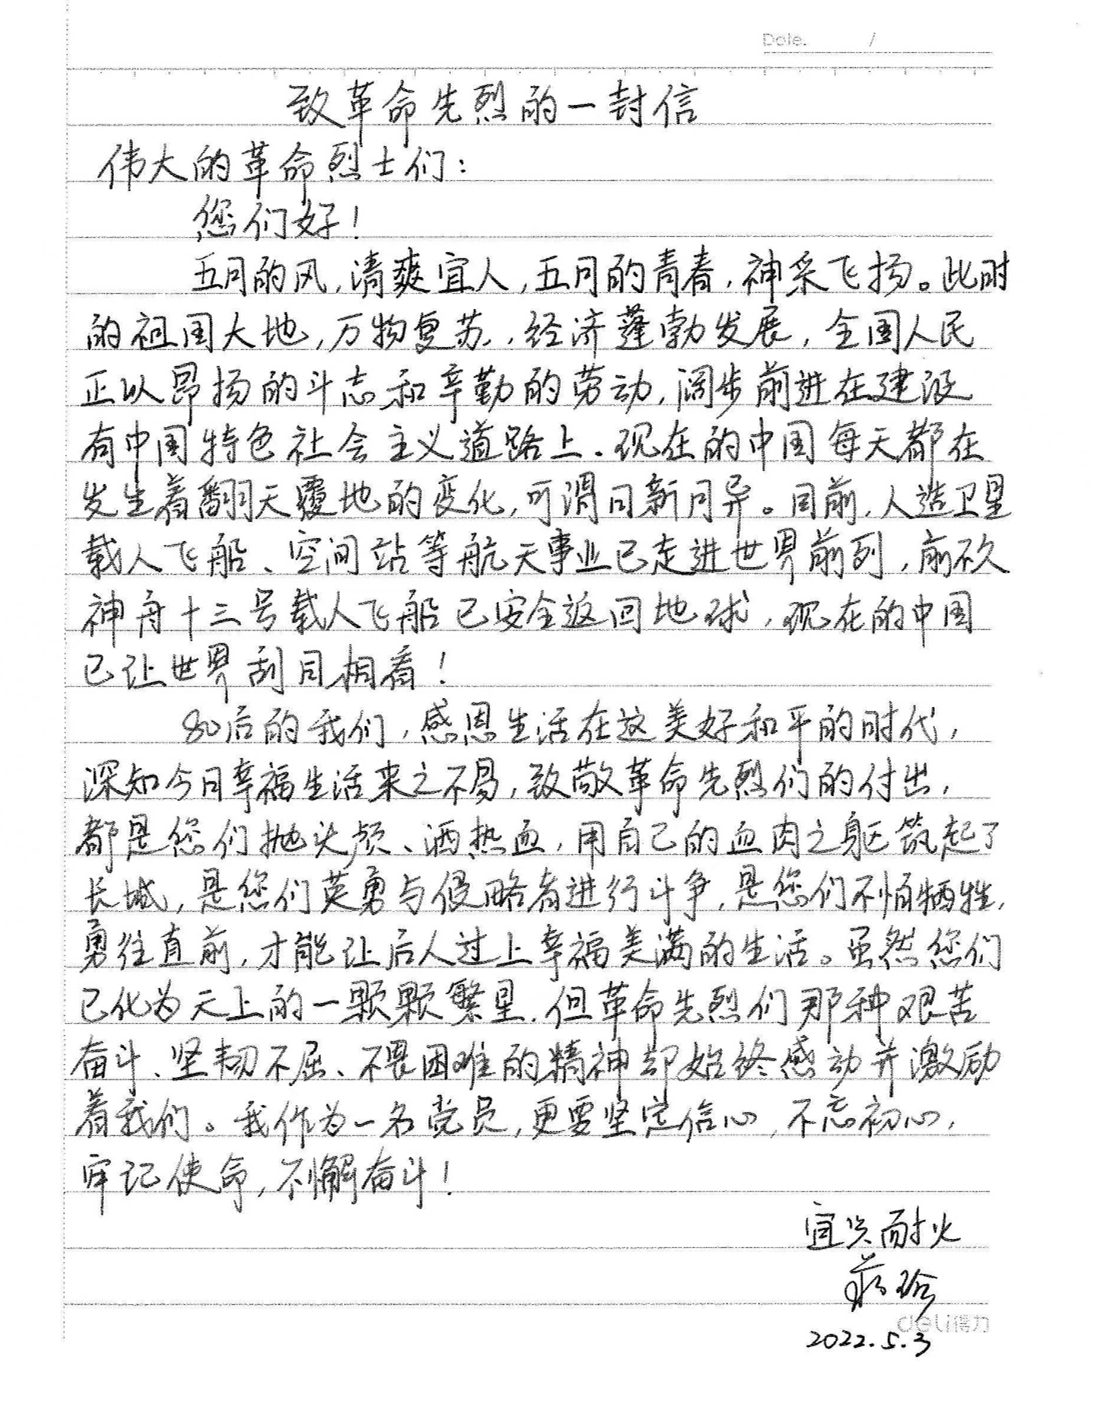 Date.      /
致革命先烈的一封信
伟大的革命烈士们：
您们好！
五月的风，清爽宜人，五月的青春，神采飞扬。此时
的祖国大地，万物复苏，经济蓬勃发展，全国人民
正以昂扬的斗志和辛勤的劳动，阔步前进在建设
有中国特色社会主义道路上。现在的中国每天都在
发生着翻天覆地的变化，可谓日新月异。目前，人造卫星
载人飞船、空间站等航天事业已走进世界前列，前不久
神舟十三号载人飞船已安全返回地球，现在的中国
已让世界刮目相看！
80后的我们，感恩生活在这美好和平的时代，
深知今日幸福生活来之不易，致敬革命先烈们的付出，
都是您们抛头颅、洒热血，用自己的血肉之躯筑起了
长城，是您们英勇与侵略者进行斗争，是您们不怕牺牲，
勇往直前，才能让后人过上幸福美满的生活。虽然您们
已化为天上的一颗颗繁星，但革命先烈们那种艰苦
奋斗、坚韧不屈、不畏困难的精神却始终感动并激励
着我们。我作为一名党员，更要坚定信心，不忘初心，
牢记使命，不懈奋斗！
宜兴耐火
蒋玲
deli得力
2022.5.3